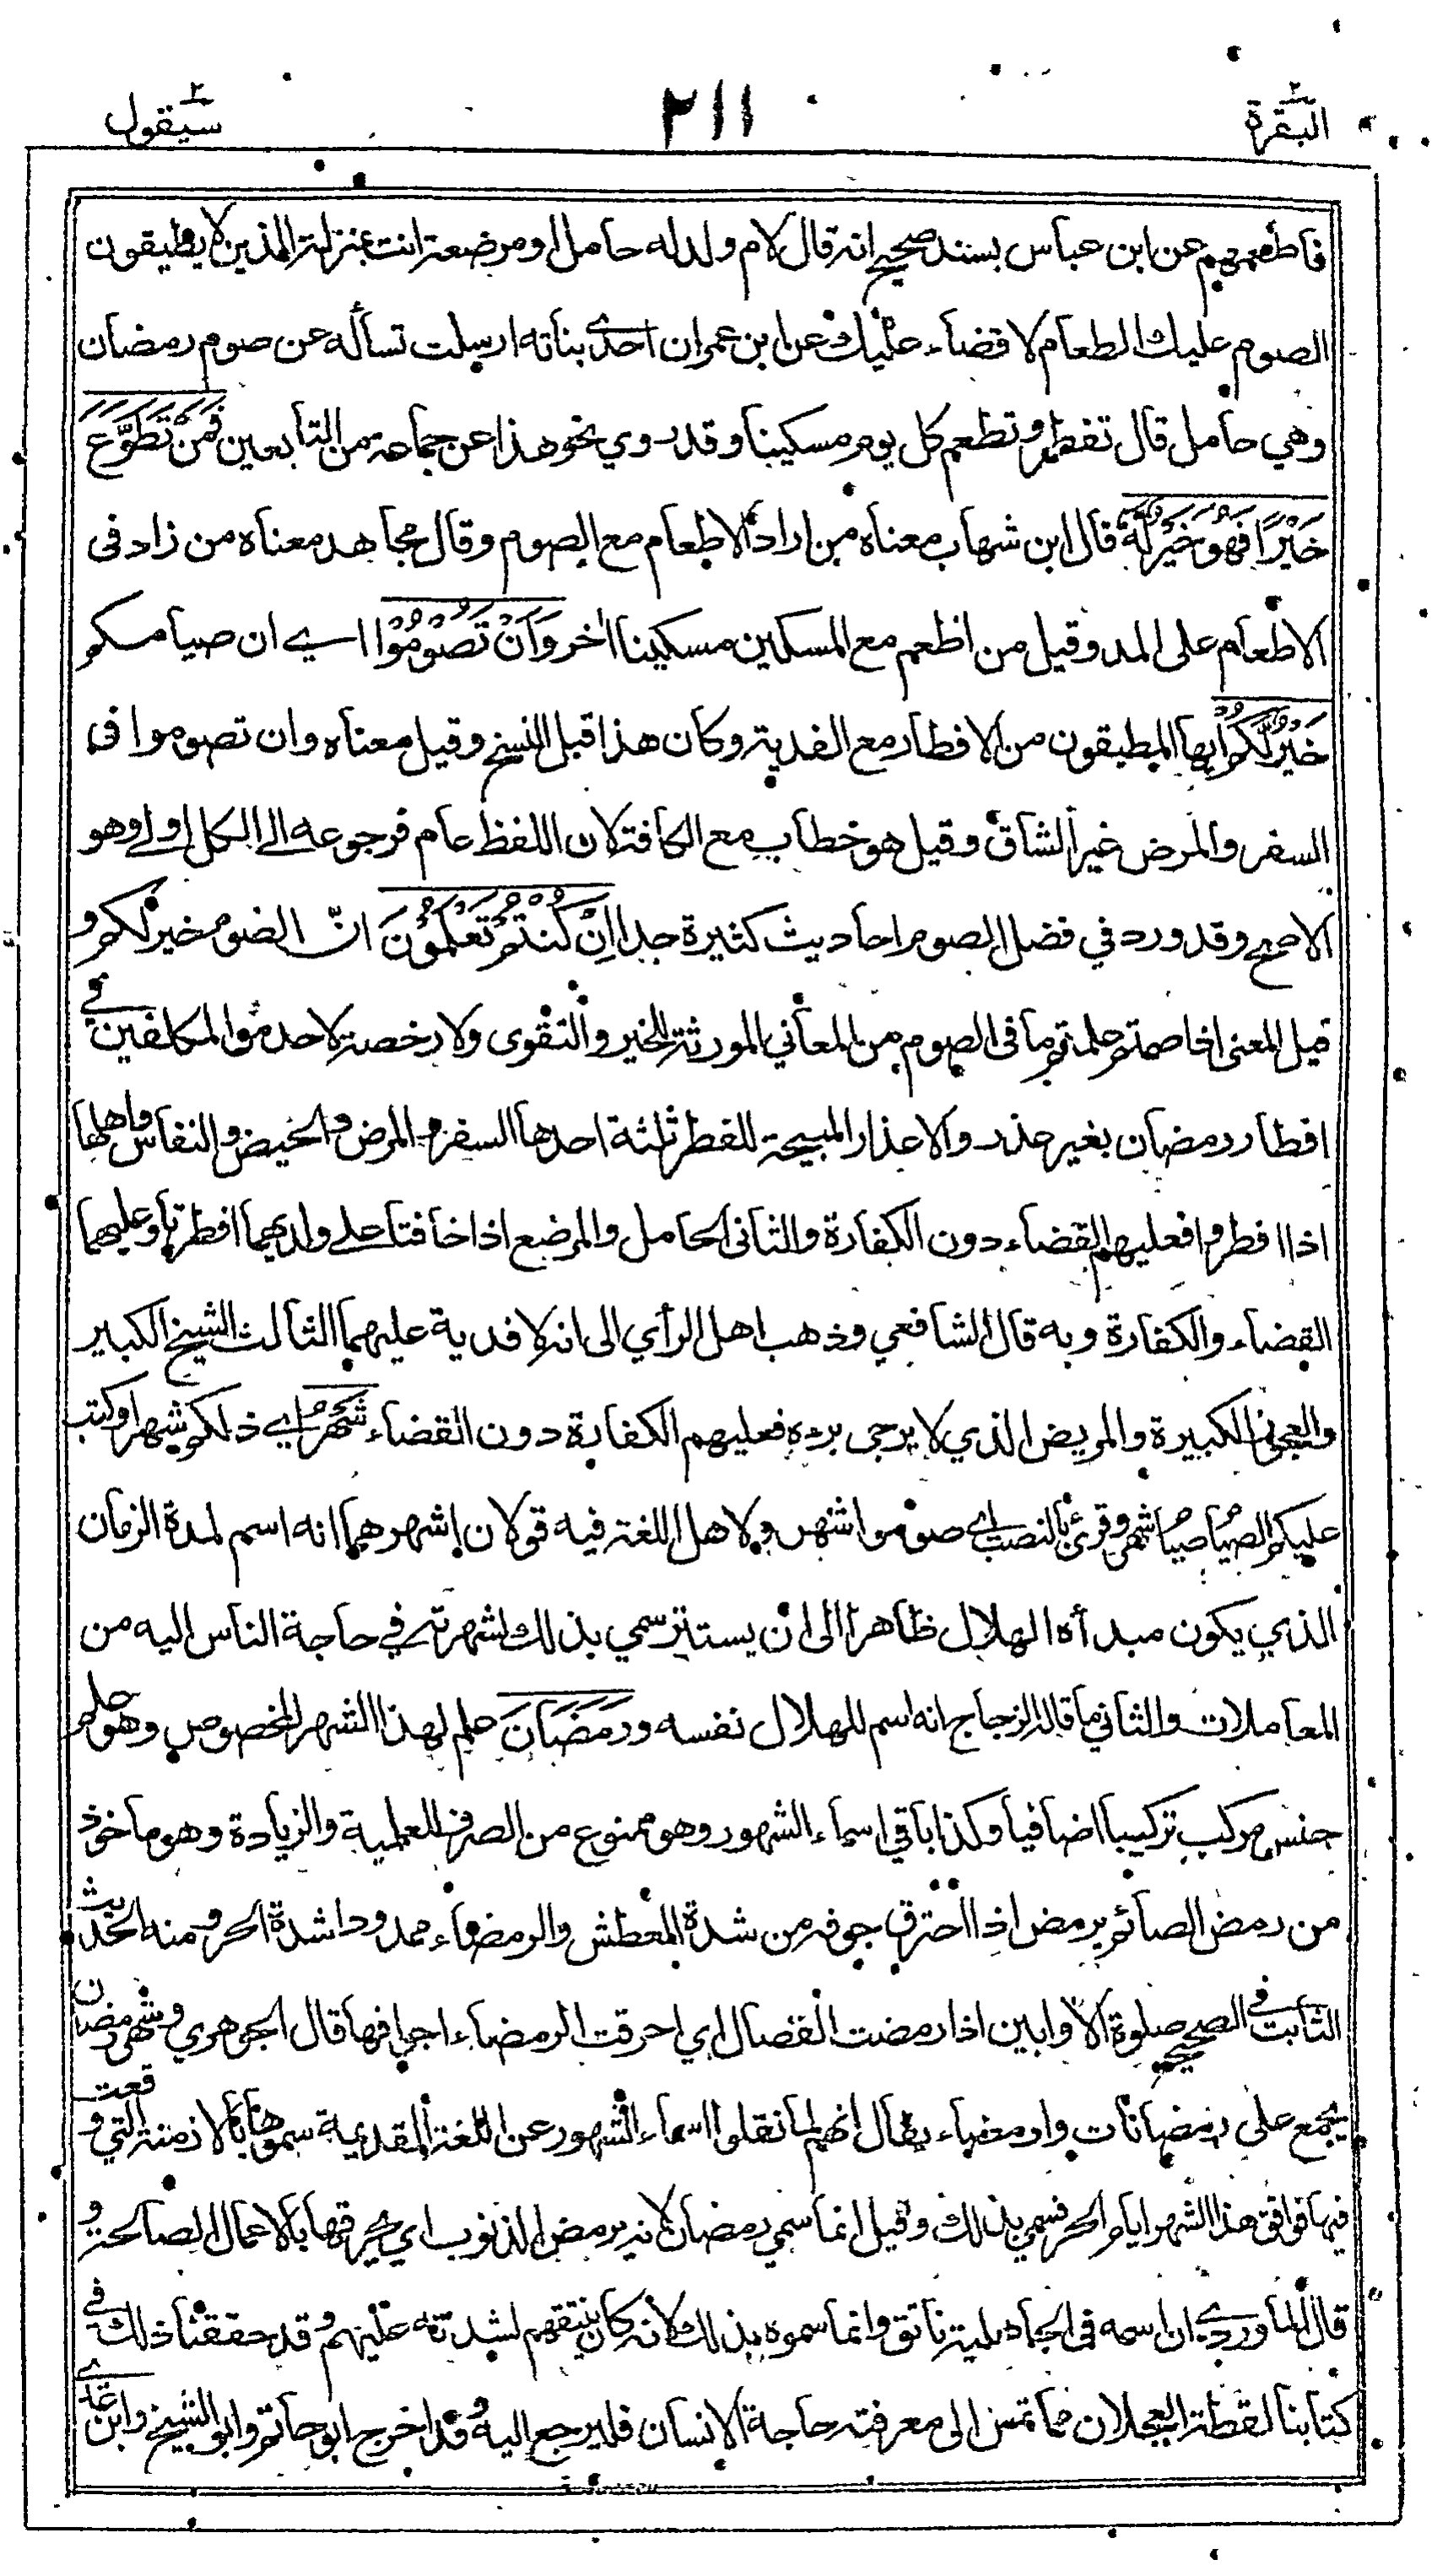 البقرة ٢
٢١١
سيقول ٢
فاطعمهم عن ابن عباس بسند صحيح انه قال لام ولد له حامل او مرضعة انت بمنزلة الذين لا يطيقون
الصوم عليك الطعام لا قضاء عليك عن ابن عمر ان احدى بناته ارسلت تسأله عن صوم رمضان
وهي حامل قال تفطر وتطعم كل يوم مسكينا وقد روي نحو هذا عن جماعة من التابعين فَمَنْ تَطَوَّعَ
خَيْرًا فَهُوَ خَيْرٌ لَّهُ قال ابن شهاب معناه من اراد الاطعام مع الصوم وقال مجاهد معناه من زاد في
الاطعام على المد وقيل من اطعم مع المسكين مسكينا اٰخر وَاَنْ تَصُوْمُوْا اي ان صيامكم
خَيْرٌ لَّكُمْ ايها المطيقون من الافطار مع الفدية وكان هذا قبل النسخ وقيل معناه وان تصوموا في
السفر والمرض غير الشاق وقيل هو خطاب مع الكافة لان اللفظ عام فرجوعه الى الكل اولى وهو
الاصح وقد ورد في فضل الصوم احاديث كثيرة جدا اِنْ كُنْتُمْ تَعْلَمُوْنَ انّ الصوم خير لكم و
قيل المعنى اذا صمتم علمتم ما في الصوم من المعاني المورثة للخير والتقوى ولا رخصة لاحد من المكلفين في
افطار رمضان بغير عذر والاعذار المبيحة للفطر ثلثة احدها السفر والمرض والحيض والنفاس واهلها
اذا افطروا فعليهم القضاء دون الكفارة والثاني الحامل والمرضع اذا خافتا على ولديهما افطرتا وعليهما
القضاء والكفارة وبه قال الشافعي وذهب اهل الرأي الى انه لا فدية عليهما الثالث الشيخ الكبير
والعجوز الكبيرة والمريض الذي لا يرجى برءه فعليهم الكفارة دون القضاء شَهْرُ اي ذلكم شهر او كتب
عليكم الصيام صيام شهر وقرئ بالنصب اي صوموا شهر ولاهل اللغة فيه قولان اشهرهما انه اسم لمدة الزمان
الذي يكون مبدأه الهلال ظاهرا الى ان يستتر سمي بذلك لشهرته في حاجة الناس اليه من
المعاملات والثاني ما قاله الزجاج انه اسم للهلال نفسه ورَمَضَانَ علم لهذا الشهر المخصوص وهو علم
جنس مركب تركيبا اضافيا وكذا باقي اسماء الشهور وهو ممنوع من الصرف للعلمية والزيادة وهو ماخوذ
من رمض الصائم يرمض اذا احترق جوفه من شدة العطش والرمضاء ممدودا شدة الحر ومنه الحديث
الثابت في الصحيح صلوة الاوابين اذا رمضت الفصال اي احرقت الرمضاء اجوافها قال الجوهري وشهر رمضان
يجمع على رمضانات وارمضاء يقال انهم لما نقلوا اسماء الشهور عن اللغة القديمة سموها بالازمنة التي وقعت
فيها فوافق هذا الشهر ايام الحر فسمي بذلك وقيل انما سمي رمضان لانه يرمض الذنوب اي يحرقها بالاعمال الصالحة و
قال الماوردي ان اسمه في الجاهلية ناتق وانما سموه بذلك لانه كان ينتقهم لشدته عليهم وقد حققنا ذلك في
كتابنا لقطة العجلان مما تمس الى معرفته حاجة الانسان فليرجع اليه وقد اخرج ابو حاتم وابو الشيخ وابن عدي